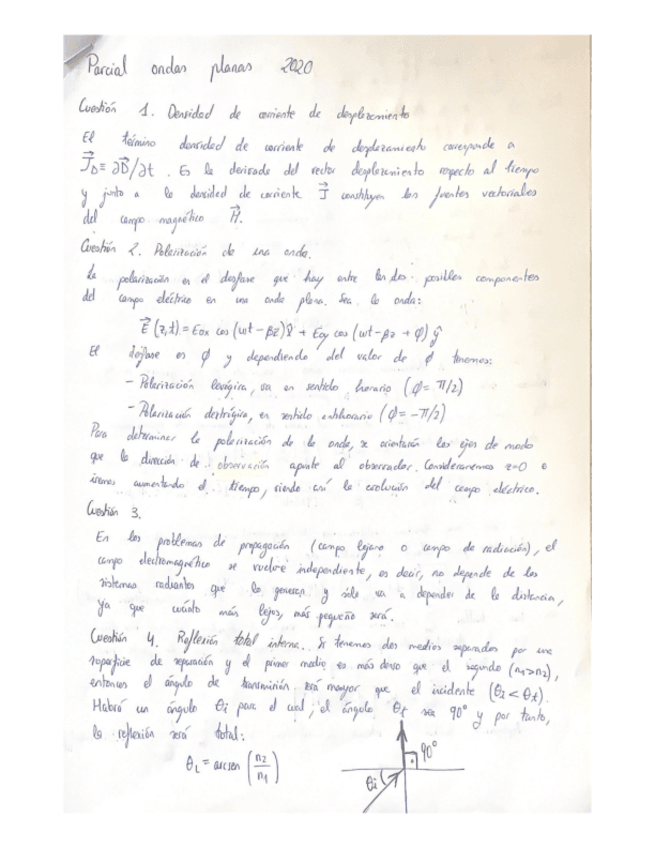 Parcial ondas planas 2020
Cuestión 1. Densidad de corriente de desplazamiento
El término densidad de corriente de desplazamiento corresponde a
J⃗_D ≡ ∂D⃗/∂t. Es la derivada del vector desplazamiento respecto al tiempo
y junto a la densidad de corriente J⃗ constituyen las fuentes vectoriales
del campo magnético H⃗.
Cuestión 2. Polarización de una onda.
La polarización es el desfase que hay entre las dos posibles componentes
del campo eléctrico en una onda plana. Sea la onda:
E⃗(z,t) = E₀ₓ cos(ωt - βz)x̂ + E₀y cos(ωt - βz + ϕ)ŷ
El desfase es ϕ y dependiendo del valor de ϕ tenemos:
- Polarización levógira, va en sentido horario (ϕ = π/2)
- Polarización dextrógira, en sentido antihorario (ϕ = -π/2)
Para determinar la polarización de la onda, se orientarán los ejes de modo
que la dirección de observación apunte al observador. Consideraremos z=0 e
iremos aumentando el tiempo, viendo así la evolución del campo eléctrico.
Cuestión 3.
En los problemas de propagación (campo lejano o campo de radiación), el
campo electromagnético se vuelve independiente, es decir, no depende de los
sistemas radiantes que lo generan y sólo va a depender de la distancia,
ya que cuánto más lejos, más pequeño será.
Cuestión 4. Reflexión total interna. Si tenemos dos medios separados por una
superficie de separación y el primer medio es más denso que el segundo (n₁>n₂),
entonces el ángulo de transmisión será mayor que el incidente (θi < θt).
Habrá un ángulo θi para el cual, el ángulo θt sea 90° y por tanto,
la reflexión será total:
θ_L = arcsen (n₂/n₁)
90°
θi